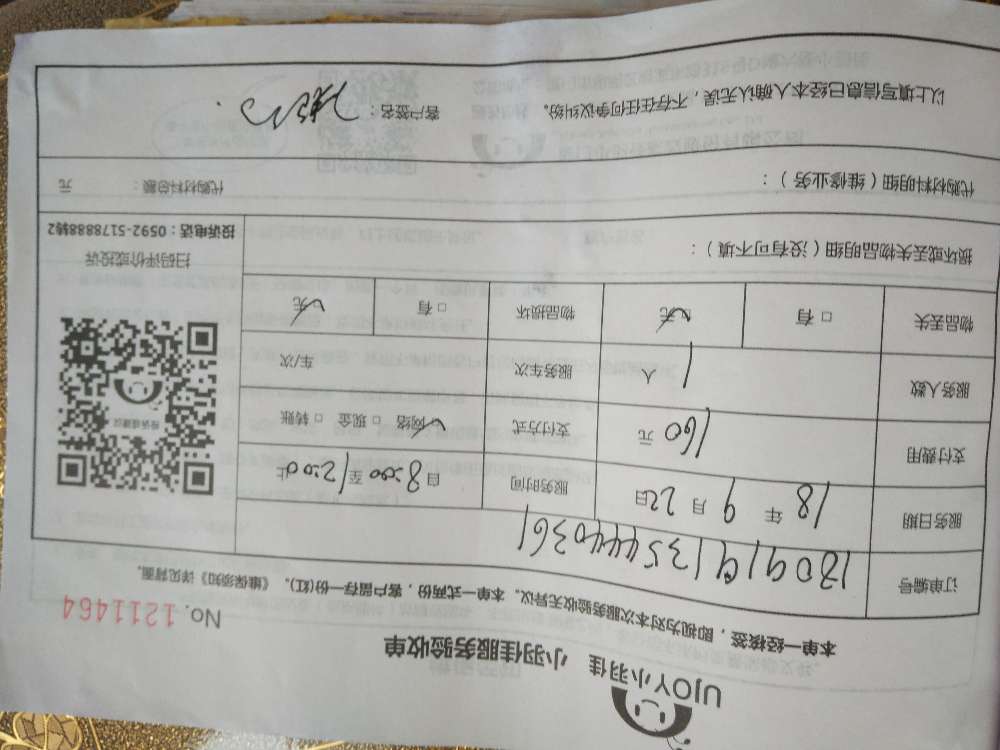 UJOY小羽佳 小羽佳服务验收单
No. 1211464
本单一经核签，即视为对本次服务验收无异议。本单一式两份，客户留存一份(红)。《维保须知》详见背面。
订单编号 1809191354440361
服务日期 18 年 9 月 22 日 服务时间 自 8:00 至 12:00 止
支付费用 160 元 支付方式 ☑网络 □现金 □转账
服务人数 1 人 服务车次 车/次
物品丢失 □有 ☑无 物品损坏 □有 ☑无
投诉或建议
扫码评价或投诉
投诉电话：0592-5178888转2
损坏或丢失物品明细（没有可不填）：
代购材料明细（维修业务）： 代购材料总额： 元
以上填写信息已经本人确认无误，不存在任何争议纠纷。 客户签名：